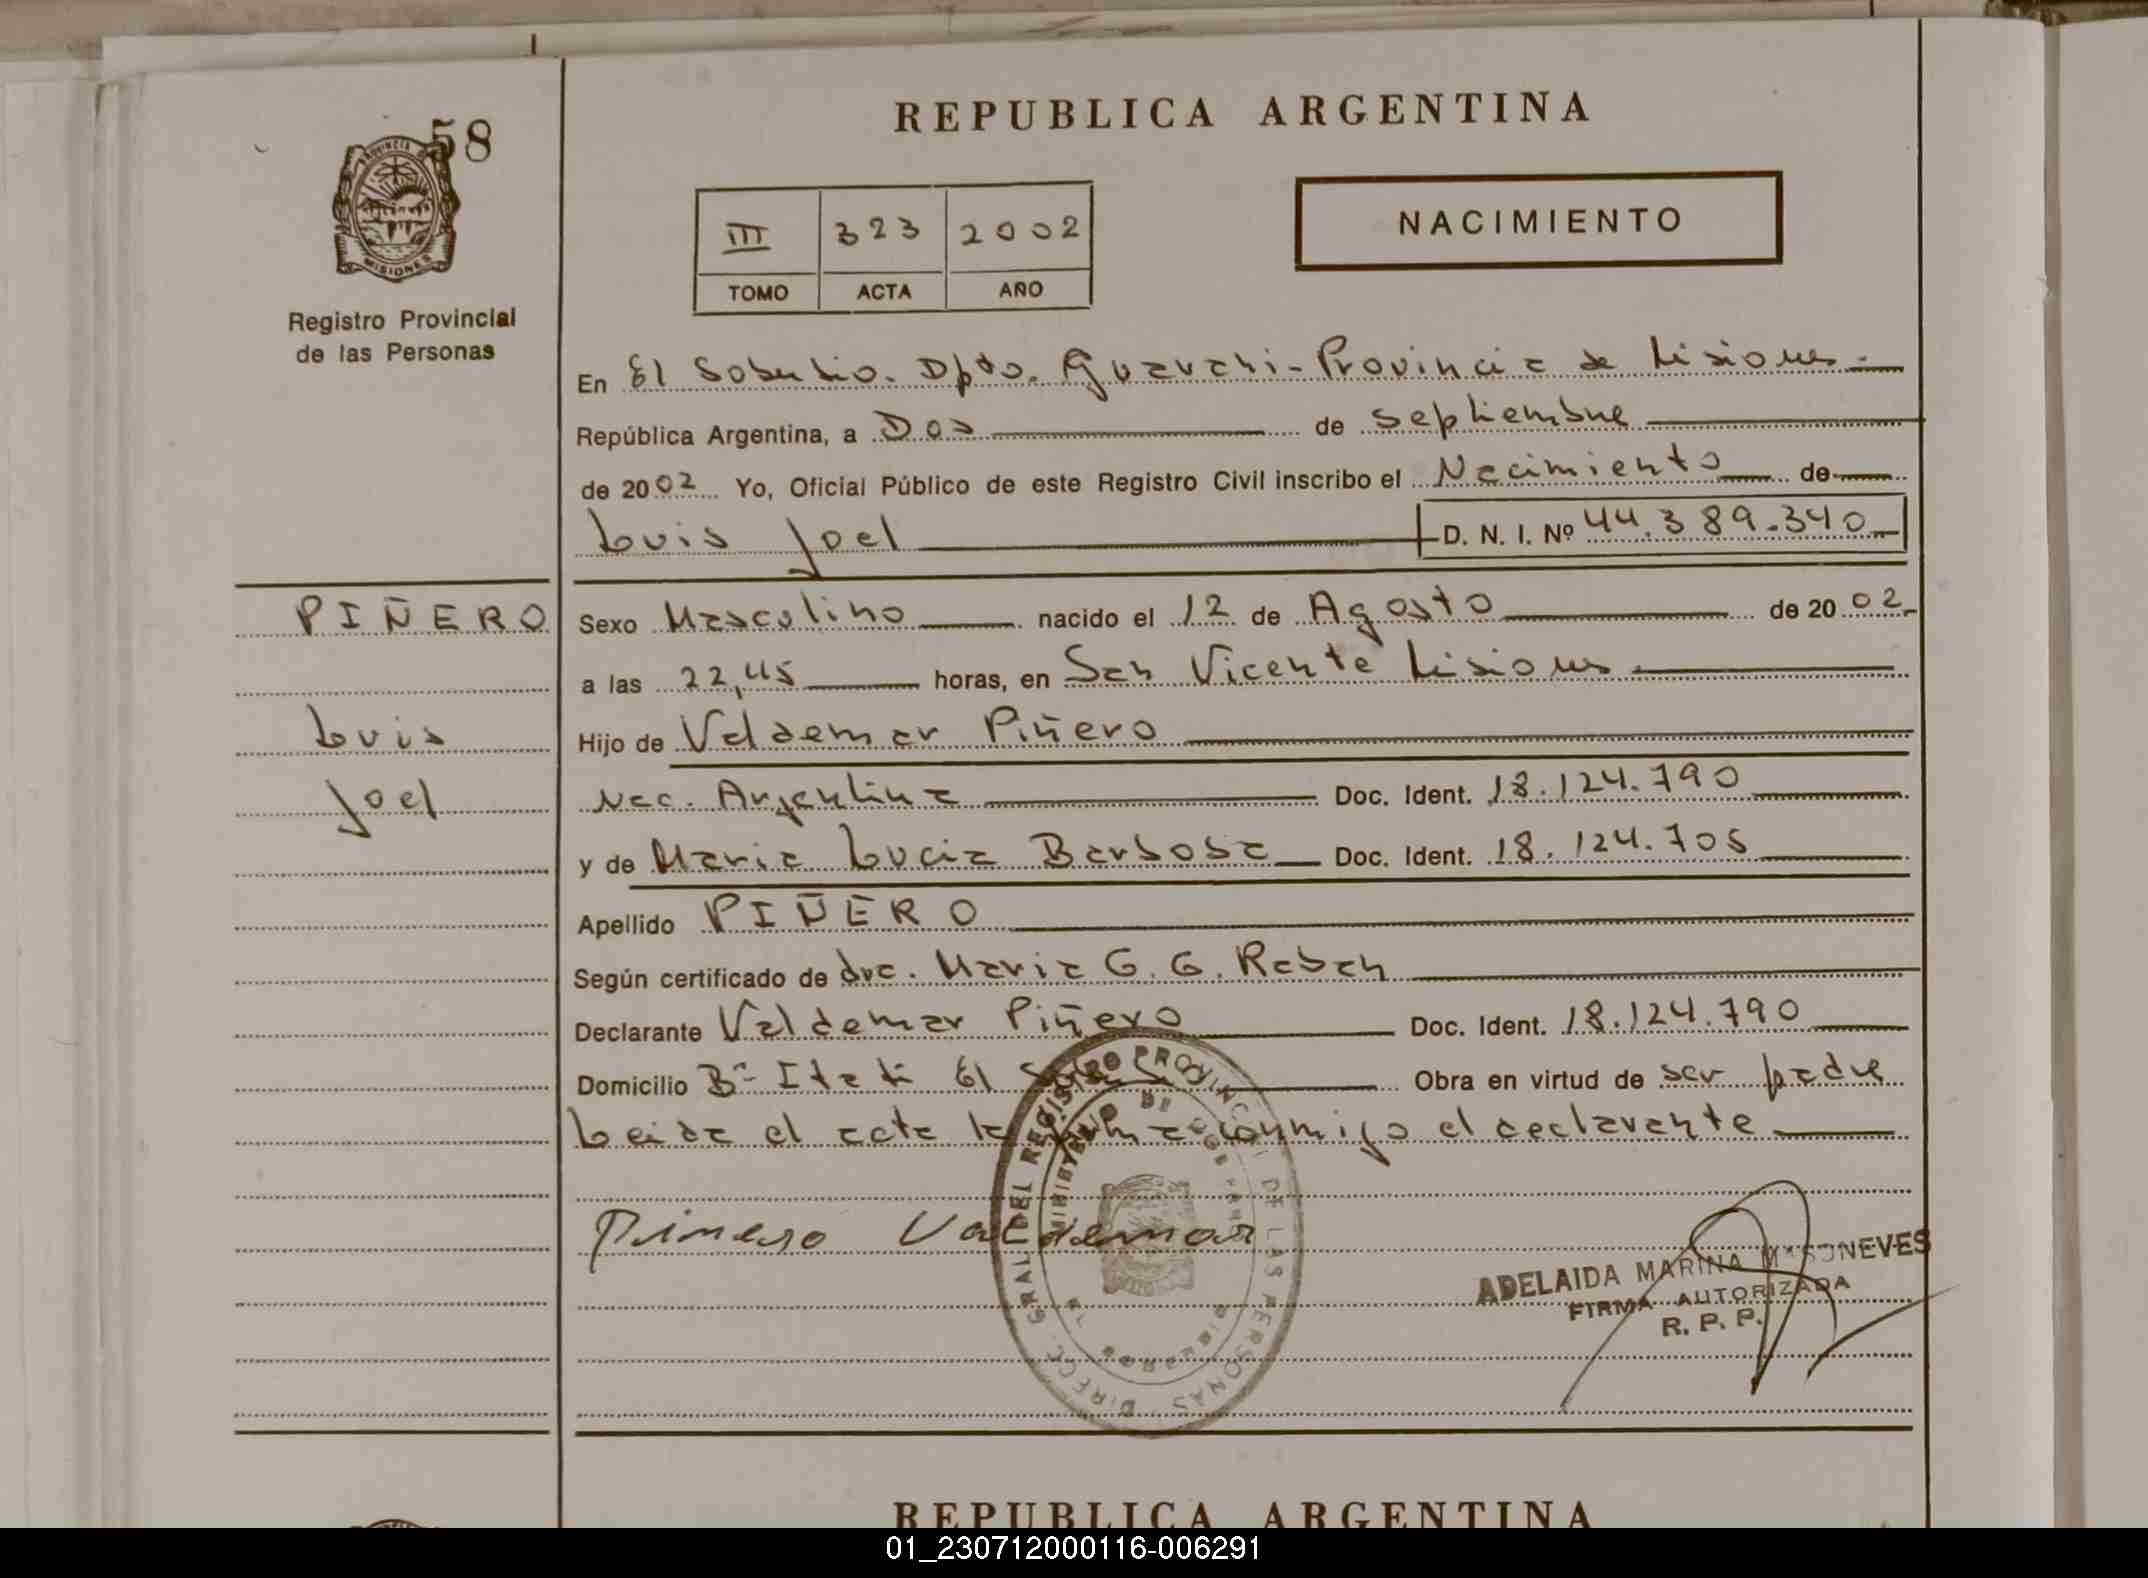 58
PROVINCIA DE
MISIONES
Registro Provincial
de las Personas
REPUBLICA ARGENTINA
III 323 2002
TOMO ACTA AÑO
NACIMIENTO
En El Soberbio. Dpto. Guarani-Provincia de Misiones.
República Argentina, a Dos de septiembre
de 2002 Yo, Oficial Público de este Registro Civil inscribo el Nacimiento de
Luis Joel D. N. I. Nº 44.389.340
PIÑERO
Luis
Joel
Sexo Masculino nacido el 12 de Agosto de 2002
a las 22,45 horas, en San Vicente Misiones
Hijo de Valdemar Piñero
Nac. Argentina Doc. Ident. 18.124.790
y de Maria Lucia Barbosa Doc. Ident. 18.124.705
Apellido PIÑERO
Según certificado de dra. Maria G. G. Raban
Declarante Valdemar Piñero Doc. Ident. 18.124.790
Domicilio Bº Itati El Obra en virtud de ser padre
Leida el acta la firma conmigo el declarante
Pinero Valdemar
DIRECC. GRAL. DEL REGISTRO PROVINCIAL DE LAS PERSONAS
MINISTERIO DE GOBIERNO
ADELAIDA MARINA
FIRMA AUTORIZADA
R. P. P.
REPUBLICA ARGENTINA
01_230712000116-006291